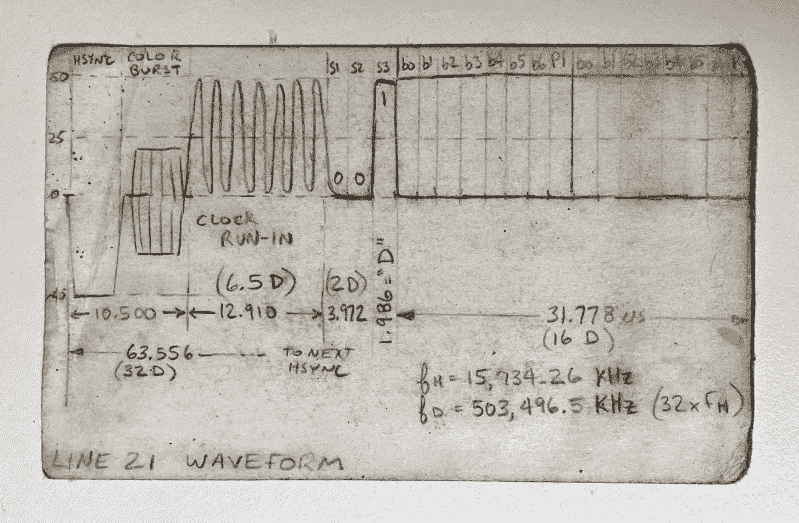 HSYNC COLOR BURST S1 S2 S3 b0 b1 b2 b3 b4 b5 b6 P1 b0 b1 b2 b3 b4
50
25
0
0 0 1
CLOCK
RUN-IN
(6.5D) (2D) 1.986="D"
10.500 12.910 3.972 31.778 us
(16 D)
63.556 TO NEXT
(32D) HSYNC
fH = 15,734.26 KHz
fD = 503,496.5 KHz (32 x fH)
LINE 21 WAVEFORM